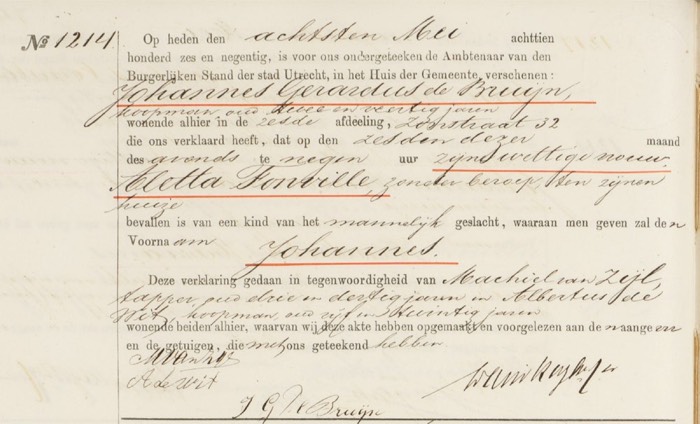 No 1214. Op heden den achtsten Mei achttien
honderd zes en negentig, is voor ons ondergeteeken de Ambtenaar van den
Burgerlijken Stand der stad Utrecht, in het Huis der Gemeente, verschenen:
Johannes Gerardus de Bruijn,
koopman, oud twee en veertig jaren
wonende alhier in de zesde afdeeling, Zonstraat 32
die ons verklaard heeft, dat op den zesden dezer maand
des avonds te negen uur zijne wettige vrouw
Aletta Fonville, zonder beroep, ten zijnen
huize
bevallen is van een kind van het mannelijk geslacht, waaraan men geven zal den
Voornaam Johannes.
Deze verklaring gedaan in tegenwoordigheid van Machiel van Zijl,
tapper, oud drie en dertig jaren en Albertus de
Wit, koopman, oud vijf en twintig jaren
wonende beiden alhier, waarvan wij deze akte hebben opgemaakt en voorgelezen aan de aangever
en de getuigen, die met ons geteekend hebben
MVanZijl
A de Wit
J G De Bruijn